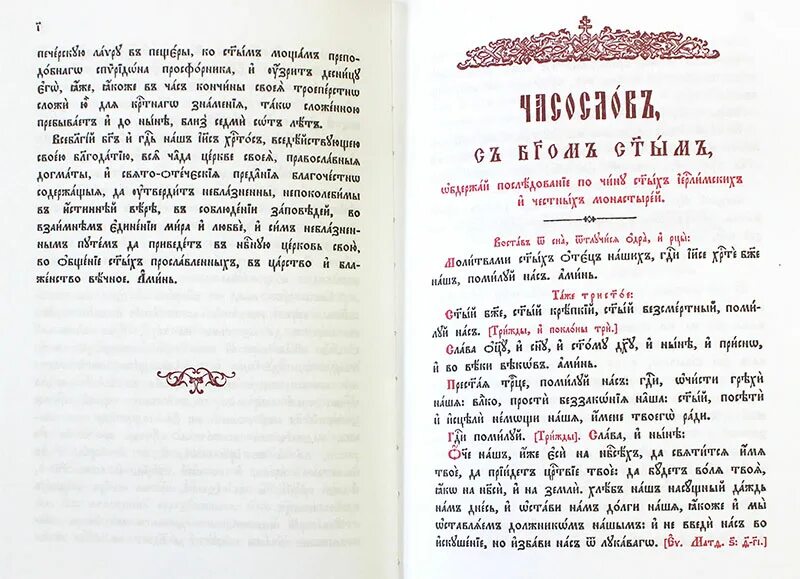 і҃
пече́рскую ла́ѵру въ пеще́ры, ко ст҃ы̑мъ моща́мъ преподо́бнагѡ спѷрїдѡ́на просфо́рника, и҆ ᲂу҆́зритъ десни́цу
є҆гѡ̀, ꙗ҆́же, ꙗ҆́коже въ ча́съ кончи́ны своеѧ̀ троепе́рстнѡ
сложѝ ю҆̀ для кр҇тнагѡ зна́менїѧ, та́кѡ сложе́нною
пребыва́етъ и҆ до нн҃ѣ, бли́з̾ седмѝ сѡ́тъ лѣ́тъ.
Всебл҃гі́й бг҃ъ и҆ гд҇ь на́шъ і҆и҃съ хрⷭ҇то́съ, вседѣ́йствующею
своє́ю благода́тїю, всѧ̑ ча̑да це́ркве своеѧ̀, правосла̑вныѧ
доѓматы, и҆ свѧ́то-ѻ҆те́чєскїѧ преда̑нїѧ благоче́стнѡ
содержа́щыѧ, да ᲂу҆тверди́тъ неблазне́нны, непоколеби́мы
въ и҆́стиннѣй вѣ́рѣ, въ соблюде́нїи за́повѣдей, во
взаи́мнѣмъ є҆дине́нїи ми́ра и҆ любвѐ, и҆ си́мъ неблазне́ннымъ путе́мъ да приведе́тъ въ нбⷭ҇ную це́рковь свою̀,
во ѻ҆бще́нїе ст҃ы́хъ просла́вленныхъ, въ ца́рство и҆ блаже́нство вѣ́чное. А҆ми́нь.
ЧАСОСЛО́ВЪ,
СЪ БГ҃ОМЪ СТ҃Ы́МЪ,
ѡ҆держа́й послѣ́дованїе по чи́нꙋ ст҃ы́хъ і҆ер҇ли́мскихъ
и҆ честны́хъ монастыре́й.
Воста́въ ѿ сна̀, ѿлꙋчи́сѧ ѻ҆дра̀, и҆ рцы̀:
Моли́твами ст҃ы́хъ ѻ҆тє́цъ на́шихъ, гдⷭ҇и і҆и҃се хрⷭ҇тѐ бж҃е
на́шъ, поми́лꙋй на́съ. А҆ми́нь.
Та́же трист҃о́е:
Ст҃ы́й бж҃е, ст҃ы́й крѣ́пкїй, ст҃ы́й безсме́ртный, поми́лꙋй на́съ. [Три́жды, и҆ покло́ны трѝ.]
Сла́ва ѻ҆ц҃ꙋ̀, и҆ сн҃ꙋ, и҆ ст҃о́мꙋ дх҃ꙋ, и҆ нн҃ѣ, и҆ при́снѡ,
и҆ во вѣ́ки вѣкѡ́въ. А҆ми́нь.
Прест҃а́ѧ трⷪ҇це, поми́лꙋй на́съ: гдⷭ҇и, ѡ҆чи́сти грѣхѝ
на́шѧ: влⷣко, простѝ беззакѡ́нїѧ на̑ша: ст҃ы́й, посѣтѝ
и҆ и҆сцѣлѝ не́мѡщи на́шѧ, и҆́мене твоегѡ̀ ра́ди.
Гдⷭ҇и поми́лꙋй. [Три́жды]. Сла́ва, и҆ нн҃ѣ:
Ѻ҆́ч҃е на́шъ, и҆́же є҆сѝ на нб҃сѣ́хъ, да свѧти́тсѧ и҆́мѧ
твоѐ, да прїи́детъ црⷭ҇твїе твоѐ: да бꙋ́детъ во́лѧ твоѧ̀,
ꙗ҆́кѡ на нб҃сѝ, и҆ на землѝ. хлѣ́бъ на́шъ насꙋ́щный да́ждь
на́мъ дне́сь, и҆ ѡ҆ста́ви на́мъ до́лги на́шѧ, ꙗ҆́коже и҆ мы̀
ѡ҆ставлѧ́емъ должникѡ́мъ на́шымъ: и҆ не введѝ на́съ во
и҆скꙋше́нїе, но и҆зба́ви на́съ ѿ лꙋка́вагѡ. [Є҆ѵ. Матѳ. ѕ҃: ѳ҃-г҃і.]